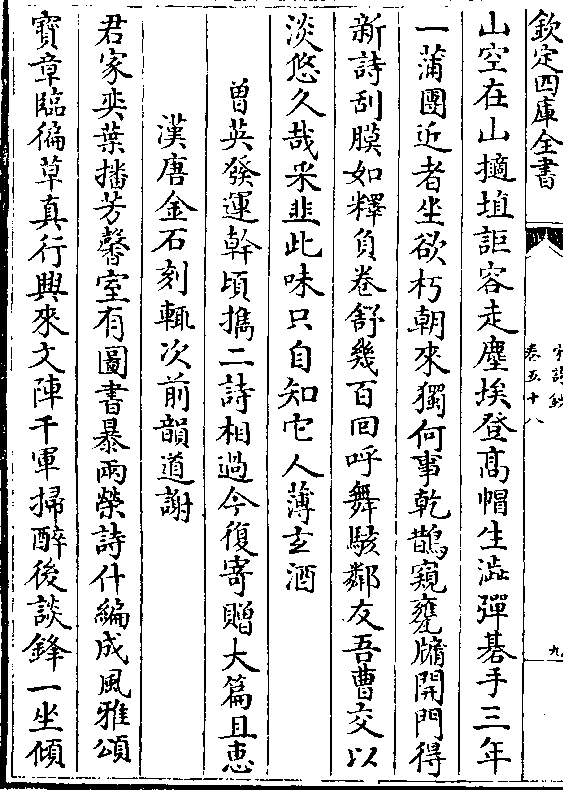 欽定四庫全書
宋詩鈔
卷五十八
九
山空在山擿埴詎容走塵埃登髙帽生澁彈碁手三年
一蒲團近者坐欲朽朝來獨何事乾鵲窺甕牖開門得
新詩刮膜如釋負卷舒幾百回呼舞駭鄰友吾曹交以
淡悠久哉采韭此味只自知它人薄玄酒
曽英發運幹頃擕二詩相過今復寄贈大篇且惠
漢唐金石刻輒次前韻道謝
君家奕葉播芳馨室有圖書暴兩榮詩什編成風雅頌
寳章臨徧草真行興來文陣千軍掃醉後談鋒一坐傾